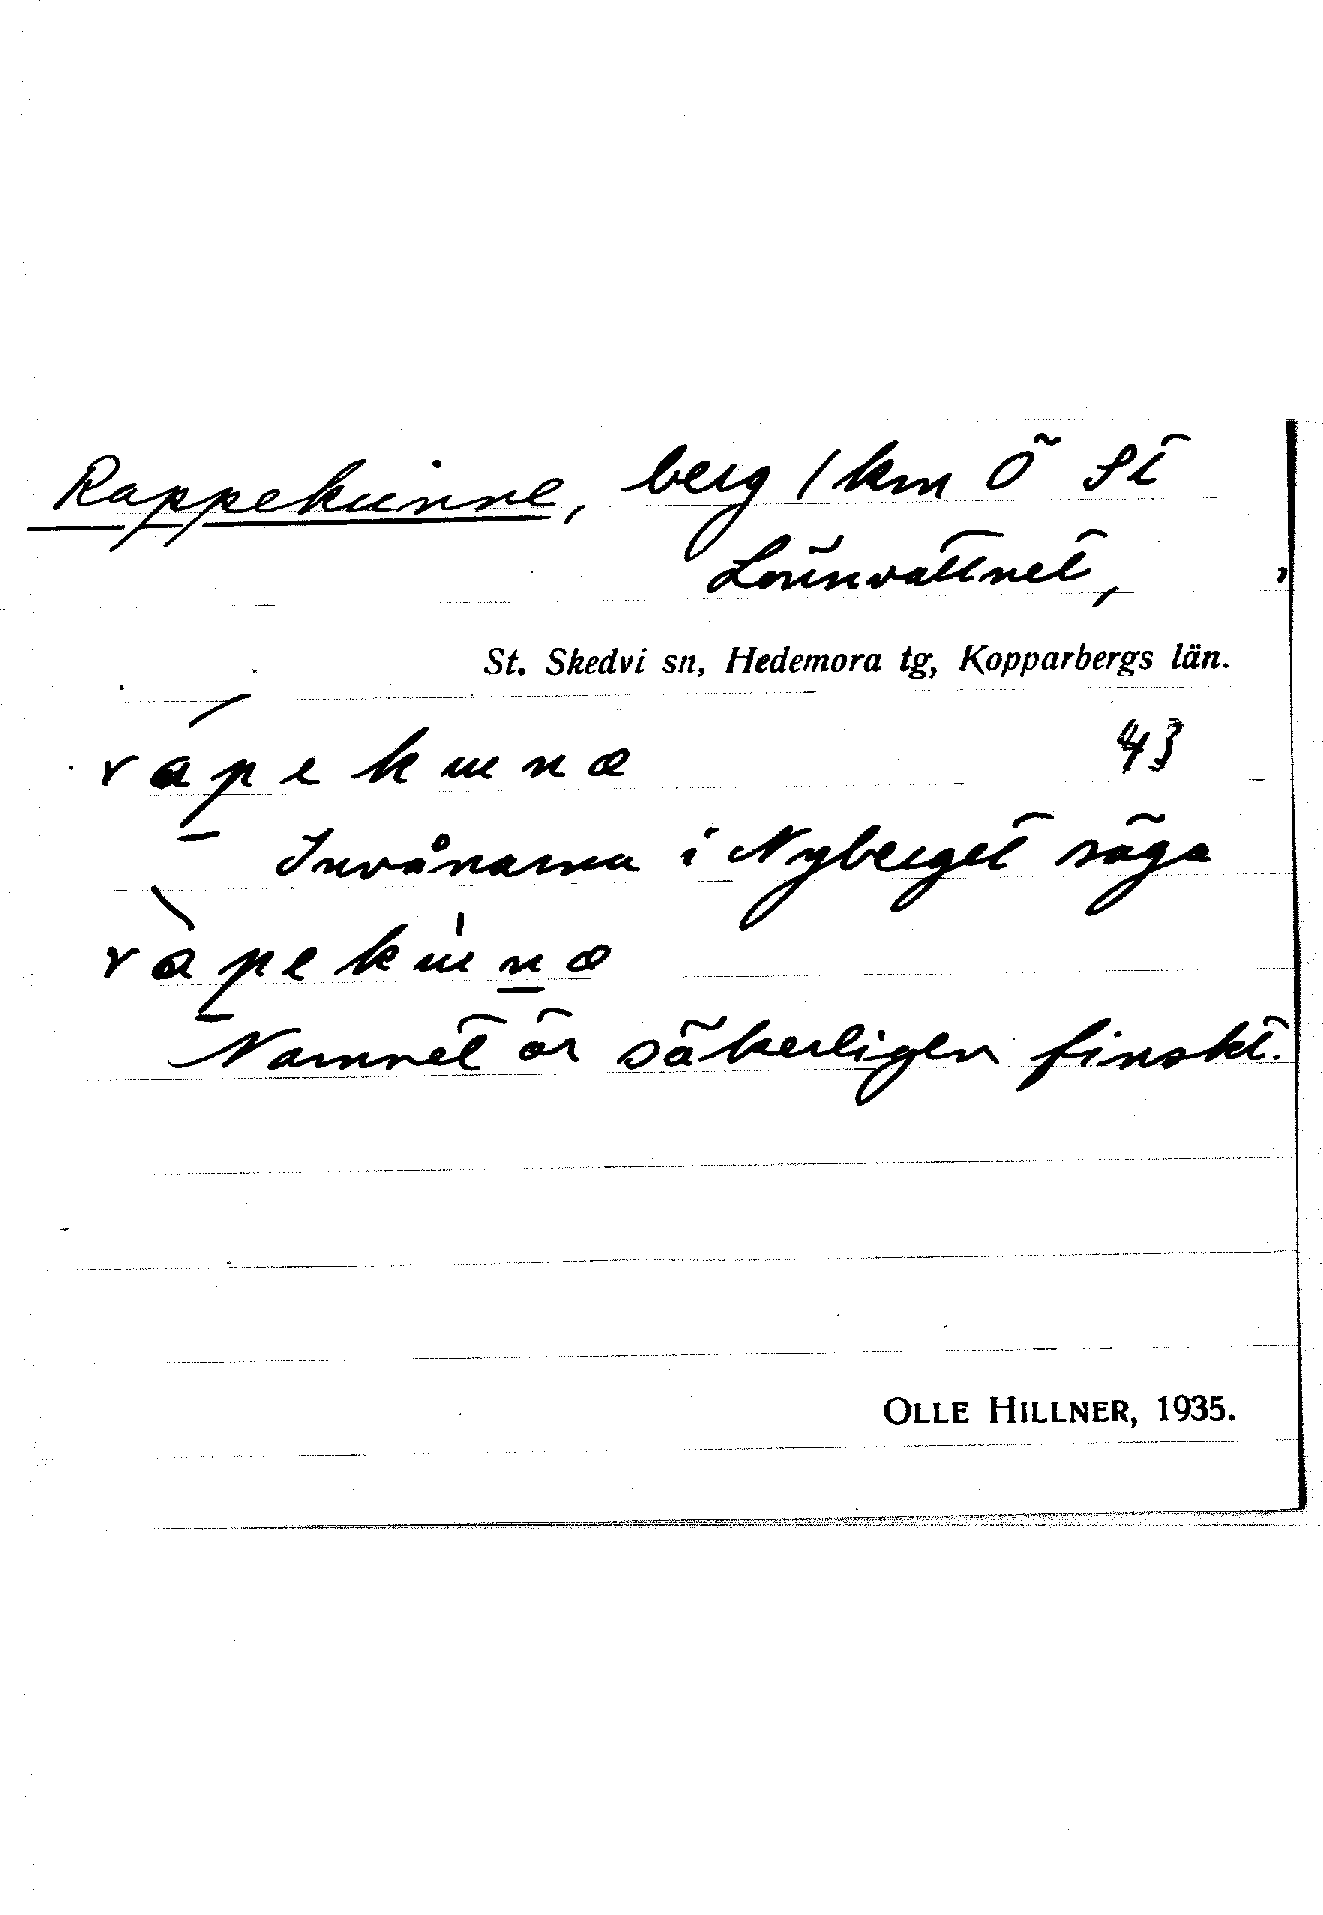 Rappekunne, berg 1 km Ö St
Lönnvattnet,
St. Skedvi sn, Hedemora tg, Kopparbergs län.
rápekɯnæ 43
Invånarna i Nyberget säga
ràpekɯ̍n̲æ
Namnet är säkerligen finskt.
OLLE HILLNER, 1935.